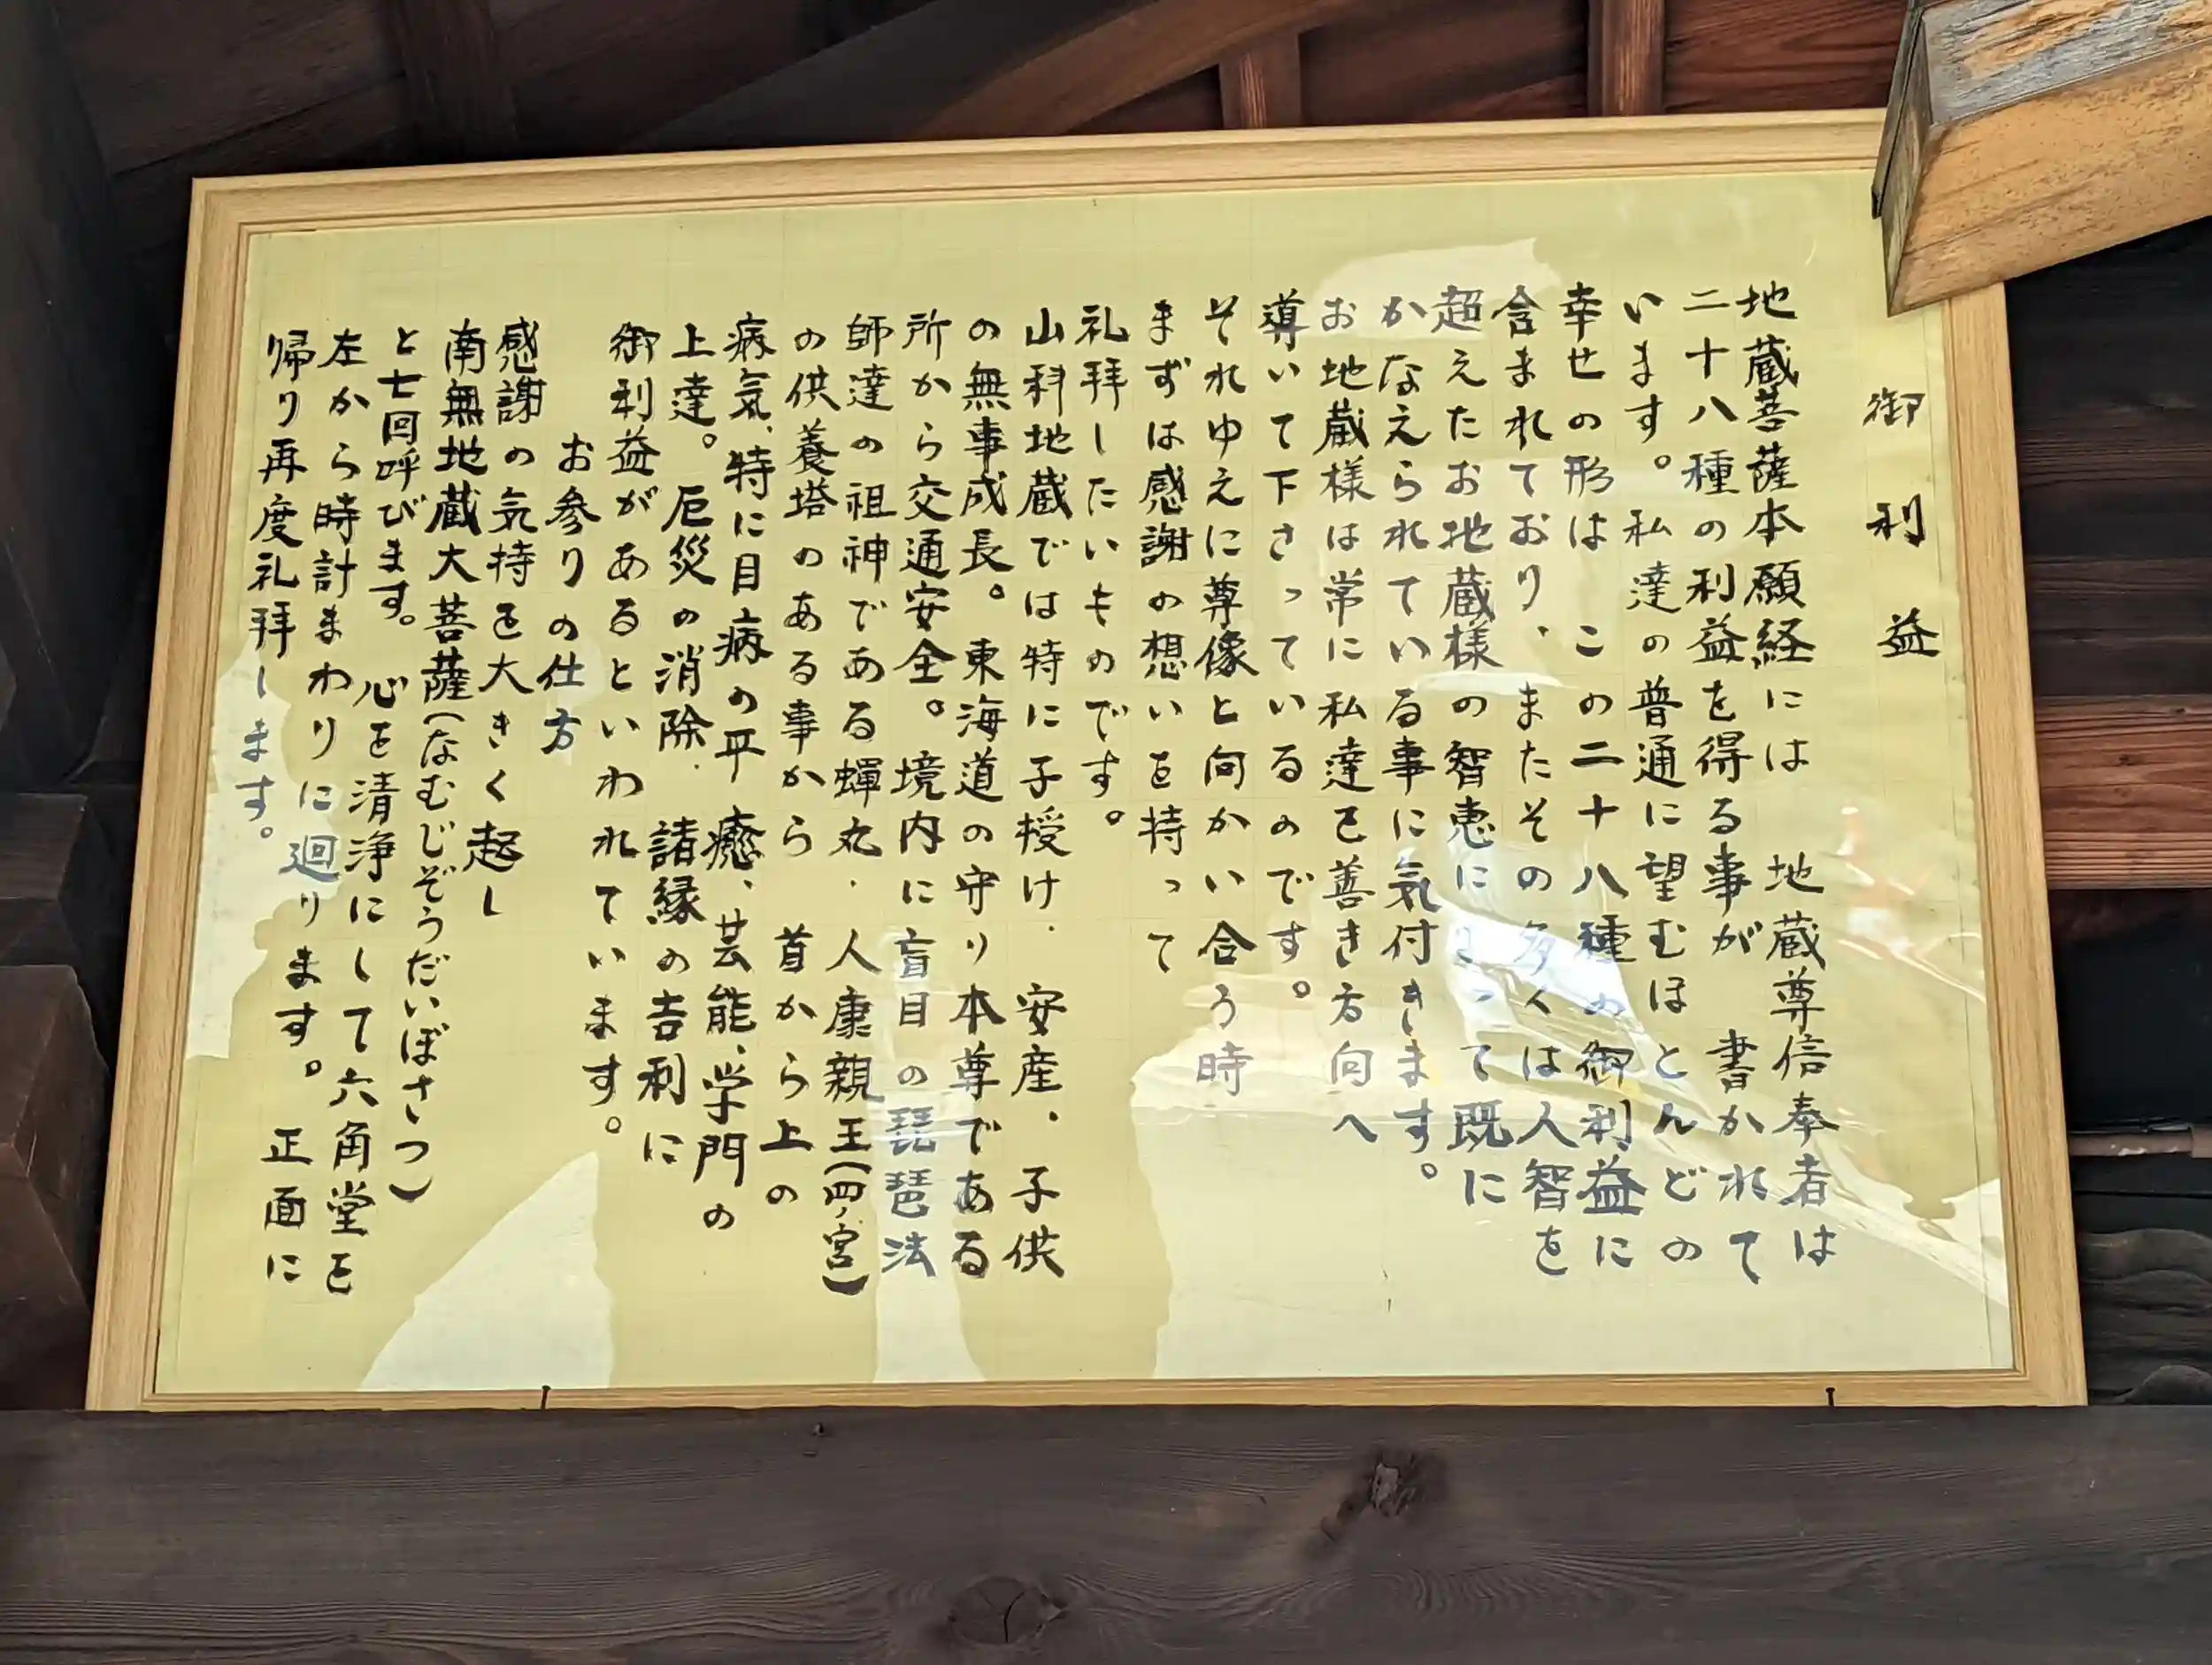 御利益
地蔵菩薩本願経には 地蔵尊信奉者は
二十八種の利益を得る事が 書かれて
います。私達の普通に望むほとんどの
幸せの形は この二十八種の御利益に
含まれており、またその多くは人智を
超えたお地蔵様の智恵によって既に
かなえられている事に気付きます。
お地蔵様は常に私達を善き方向へ
導いて下さっているのです。
それゆえに尊像と向かい合う時
まずは感謝の想いを持って
礼拝したいものです。
山科地蔵では特に子授け、安産、子供
の無事成長。東海道の守り本尊である
所から交通安全。境内に盲目の琵琶法
師達の祖神である蟬丸、人康親王(四ノ宮)
の供養塔のある事から 首から上の
病気、特に目病の平癒、芸能、学門の
上達。厄災の消除、諸縁の吉利に
御利益があるといわれています。
お参りの仕方
感謝の気持を大きく起し
南無地蔵大菩薩(なむじぞうだいぼさつ)
と七回呼びます。心を清浄にして六角堂を
左から時計まわりに廻ります。正面に
帰り再度礼拝します。